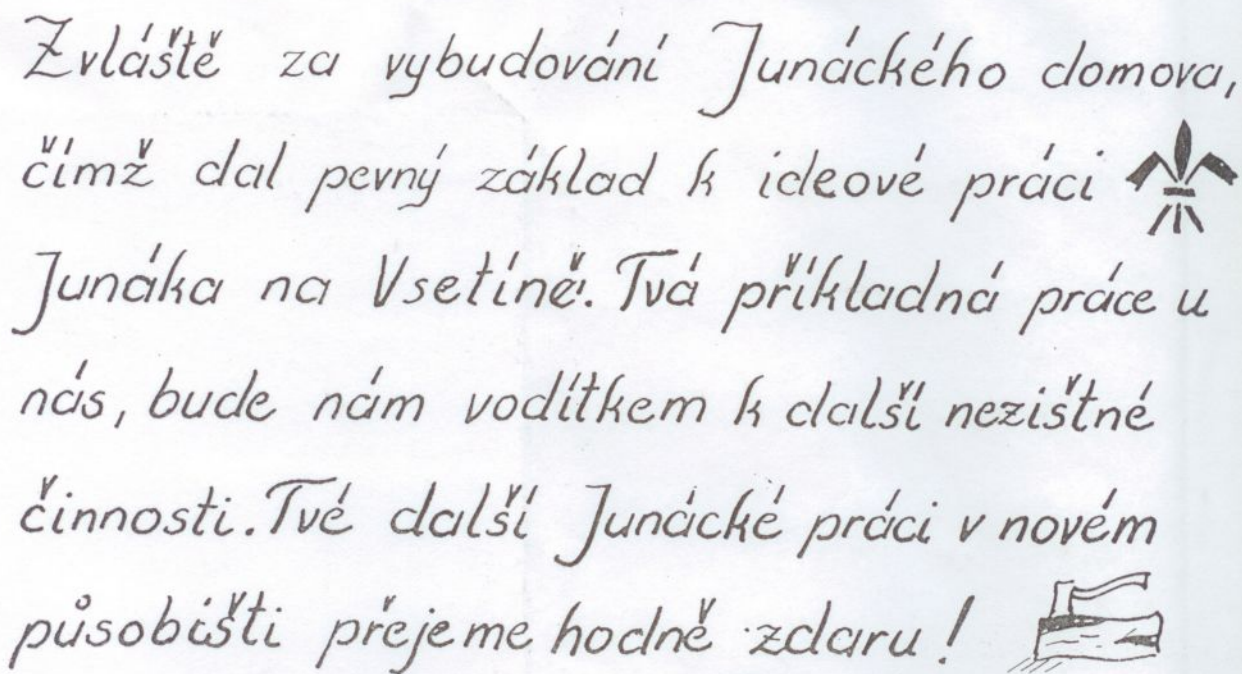 Zvláště za vybudování Junáckého domova,
čímž dal pevný základ k ideové práci
Junáka na Vsetíně. Tvá příkladná práce u
nás, bude nám vodítkem k další nezištné
činnosti. Tvé další Junácké práci v novém
působišti přejeme hodně zdaru!